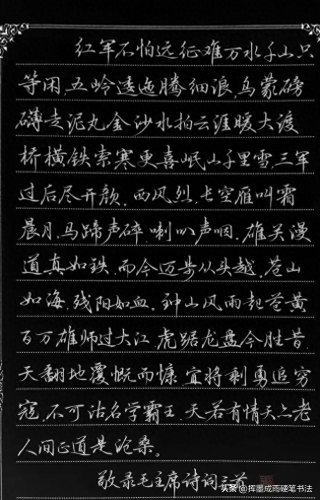 红军不怕远征难万水千山只
等闲.五岭逶迤腾细浪,乌蒙磅
礴走泥丸金沙水拍云涯暖大渡
桥横铁索寒更喜岷山千里雪.三军
过后尽开颜.西风烈.长空雁叫霜
晨月.马蹄声碎.喇叭声咽.雄关漫
道真如铁.而今迈步从头越.苍山
如海.残阳如血.钟山风雨起苍黄
百万雄师过大江虎踞龙盘今胜昔.
天翻地覆慨而慷.宜将剩勇追穷
寇.不可沽名学霸王天若有情天亦老
人间正道是沧桑.
敬录毛主席诗词三首
头条@挥墨成雨硬笔书法